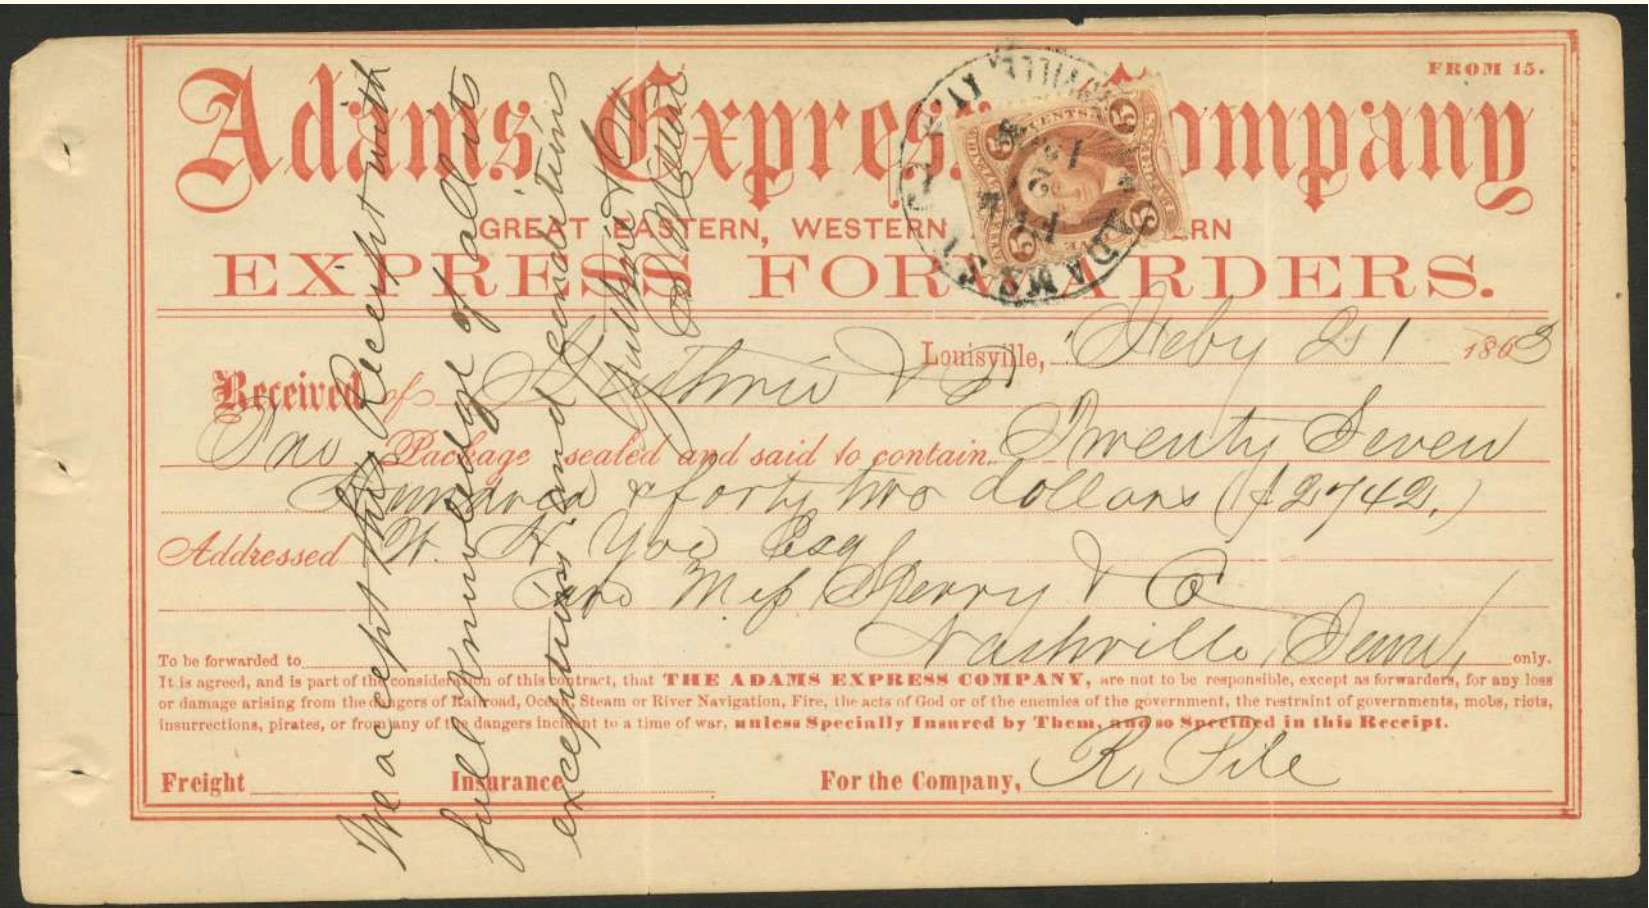 FROM 15.
Adams Express Company
GREAT EASTERN, WESTERN RN
EXPRESS FORWARDERS.
Louisville, Feby 21 1863
Received of Guthrie & Co
One Package sealed and said to contain Twenty Seven
Hundred & forty two dollars ($2742.)
Addressed W. H. Yoe Esq
Care Mess Sperry & Co
Nashville, Tenn,
To be forwarded to only.
It is agreed, and is part of the consideration of this contract, that THE ADAMS EXPRESS COMPANY, are not to be responsible, except as forwarders, for any loss
or damage arising from the dangers of Railroad, Ocean, Steam or River Navigation, Fire, the acts of God or of the enemies of the government, the restraint of governments, mobs, riots,
insurrections, pirates, or from any of the dangers incident to a time of war, unless Specially Insured by Them, and so Specified in this Receipt.
Freight Insurance For the Company, R. Pile
We accept this Receipt with
full Knowledge of all its
exceptions and conditions
Guthrie & Co
ADAMS
VILLE, KY.
5 CENTS
U.S.